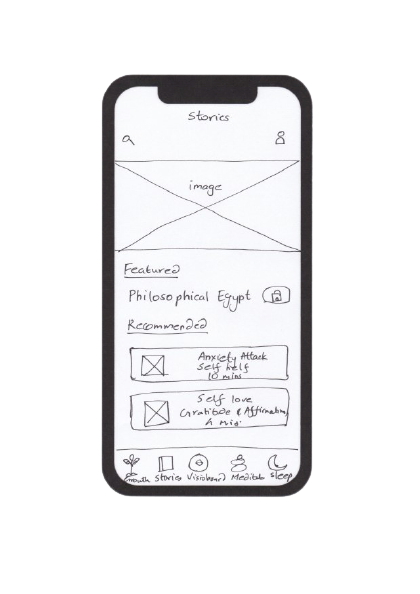 Stories
image
Featured
Philosophical Egypt
Recommended
Anxiety Attack
Self help
10 mins
Self love
Gratitude & Affirmation
Growth Stories Visionboard Meditate Sleep